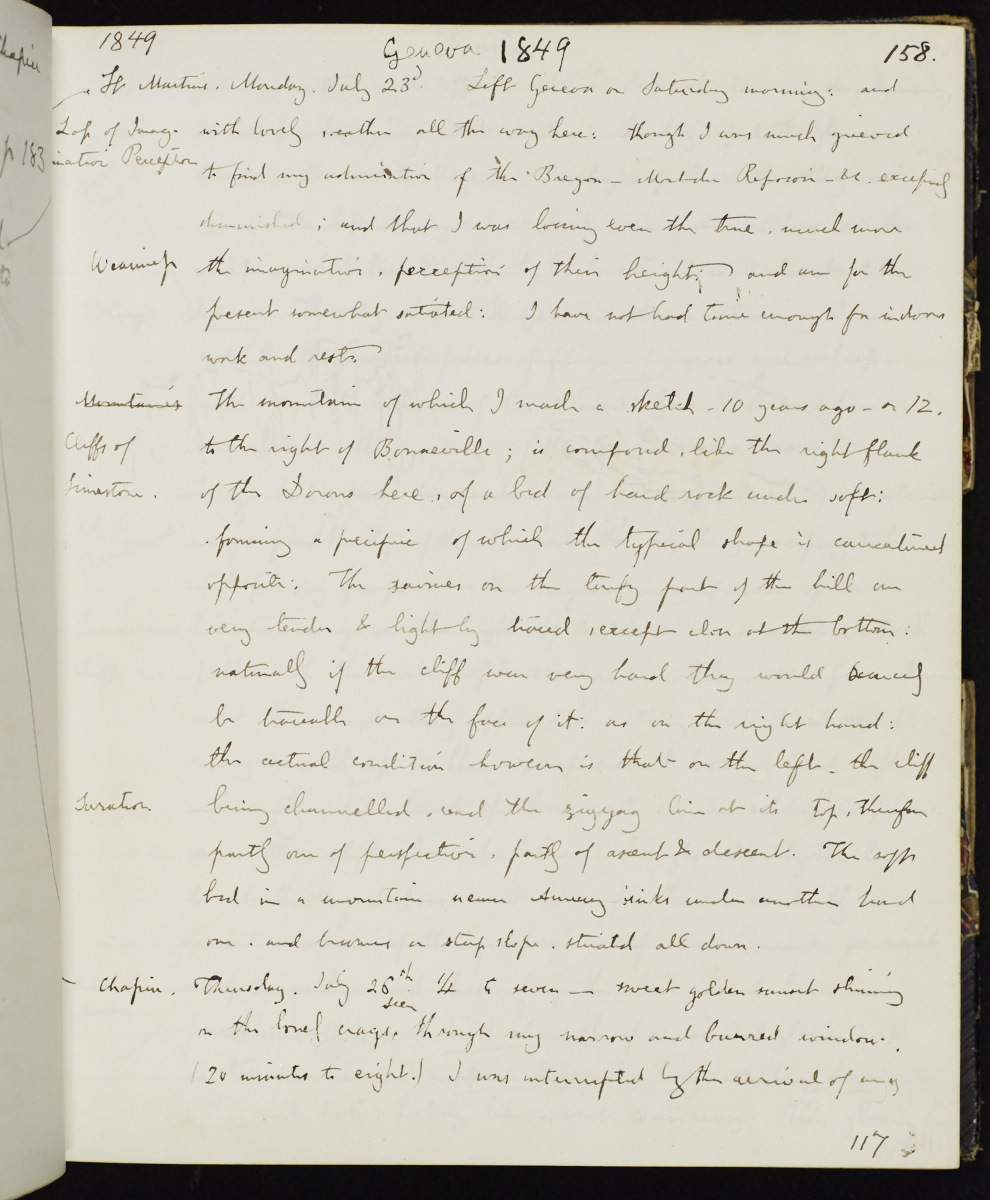 Chapin
p 183
1849
Geneva 1849
158.
St Martins. Monday. July 23d. Left Geneva on Saturday morning: and
Loss of Imag- with lovely weather all the way here: though I was much grieved
inative Perception to find my admiration of the Brezon - Mont de Reposoir - &c. excessively
diminished; and that I was losing even the true, much more
Weariness the imaginative, perception of their height; and am for the
present somewhat satiated: I have not had time enough for indoors
work and rest.
Mountains The mountain of which I made a sketch - 10 years ago - or 12.
Cliffs of to the right of Bonneville; is composed, like the right flank
limestone. of the Dorons here, of a bed of hard rock under soft:
forming a precipice of which the typical shape is caricatured
opposite: The ravines on the turfy part of the hill are
very tender & lightly traced, except close at the bottom:
naturally if the cliff were very hard they would scarcely
be traceable on the face of it: as on the right hand:
the actual condition however is that on the left. the cliff
being channelled, and the zigzag line at its top, therefore
Juration
partly one of perspective, partly of ascent & descent. The soft
bed in a mountain nearer Annecy sinks under another hard
one. and becomes a steep slope. striated all down.
Chapin. Thursday. July 26th. 1/4 to seven — sweet golden sunset shining
seen
on the lovely crags, through my narrow and burred window.
(20 minutes to eight.) I was interrupted by the arrival of my
117